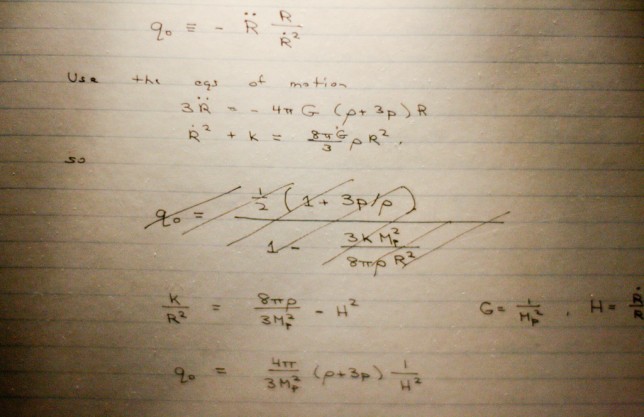 q₀ ≡ - R̈ R/Ṙ²
Use the eqs of motion
3R̈ = - 4π G (ρ+3p) R
Ṙ² + k = 8πG/3 ρR².
so
q₀ = ½ (1 + 3p/ρ) / (1 - 3kMₚ²/8πρR²)
k/R² = 8πρ/3Mₚ² - H² G = 1/Mₚ², H = Ṙ/R
q₀ = 4π/3Mₚ² (ρ+3p) 1/H²